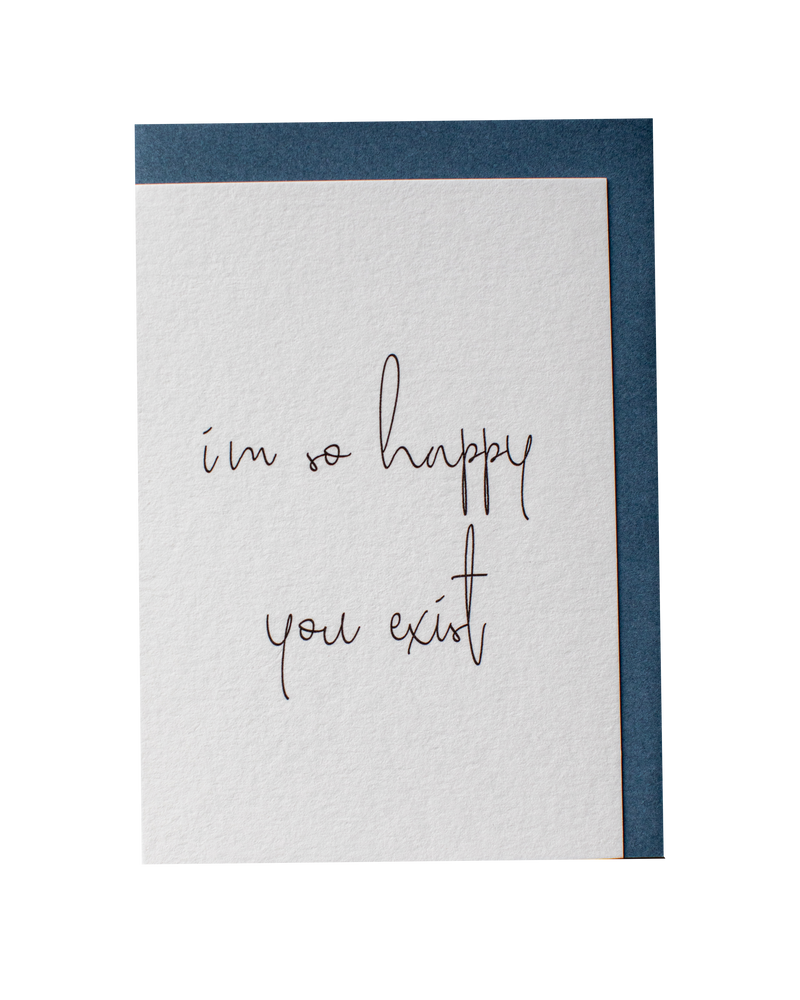 im so happy
you exist